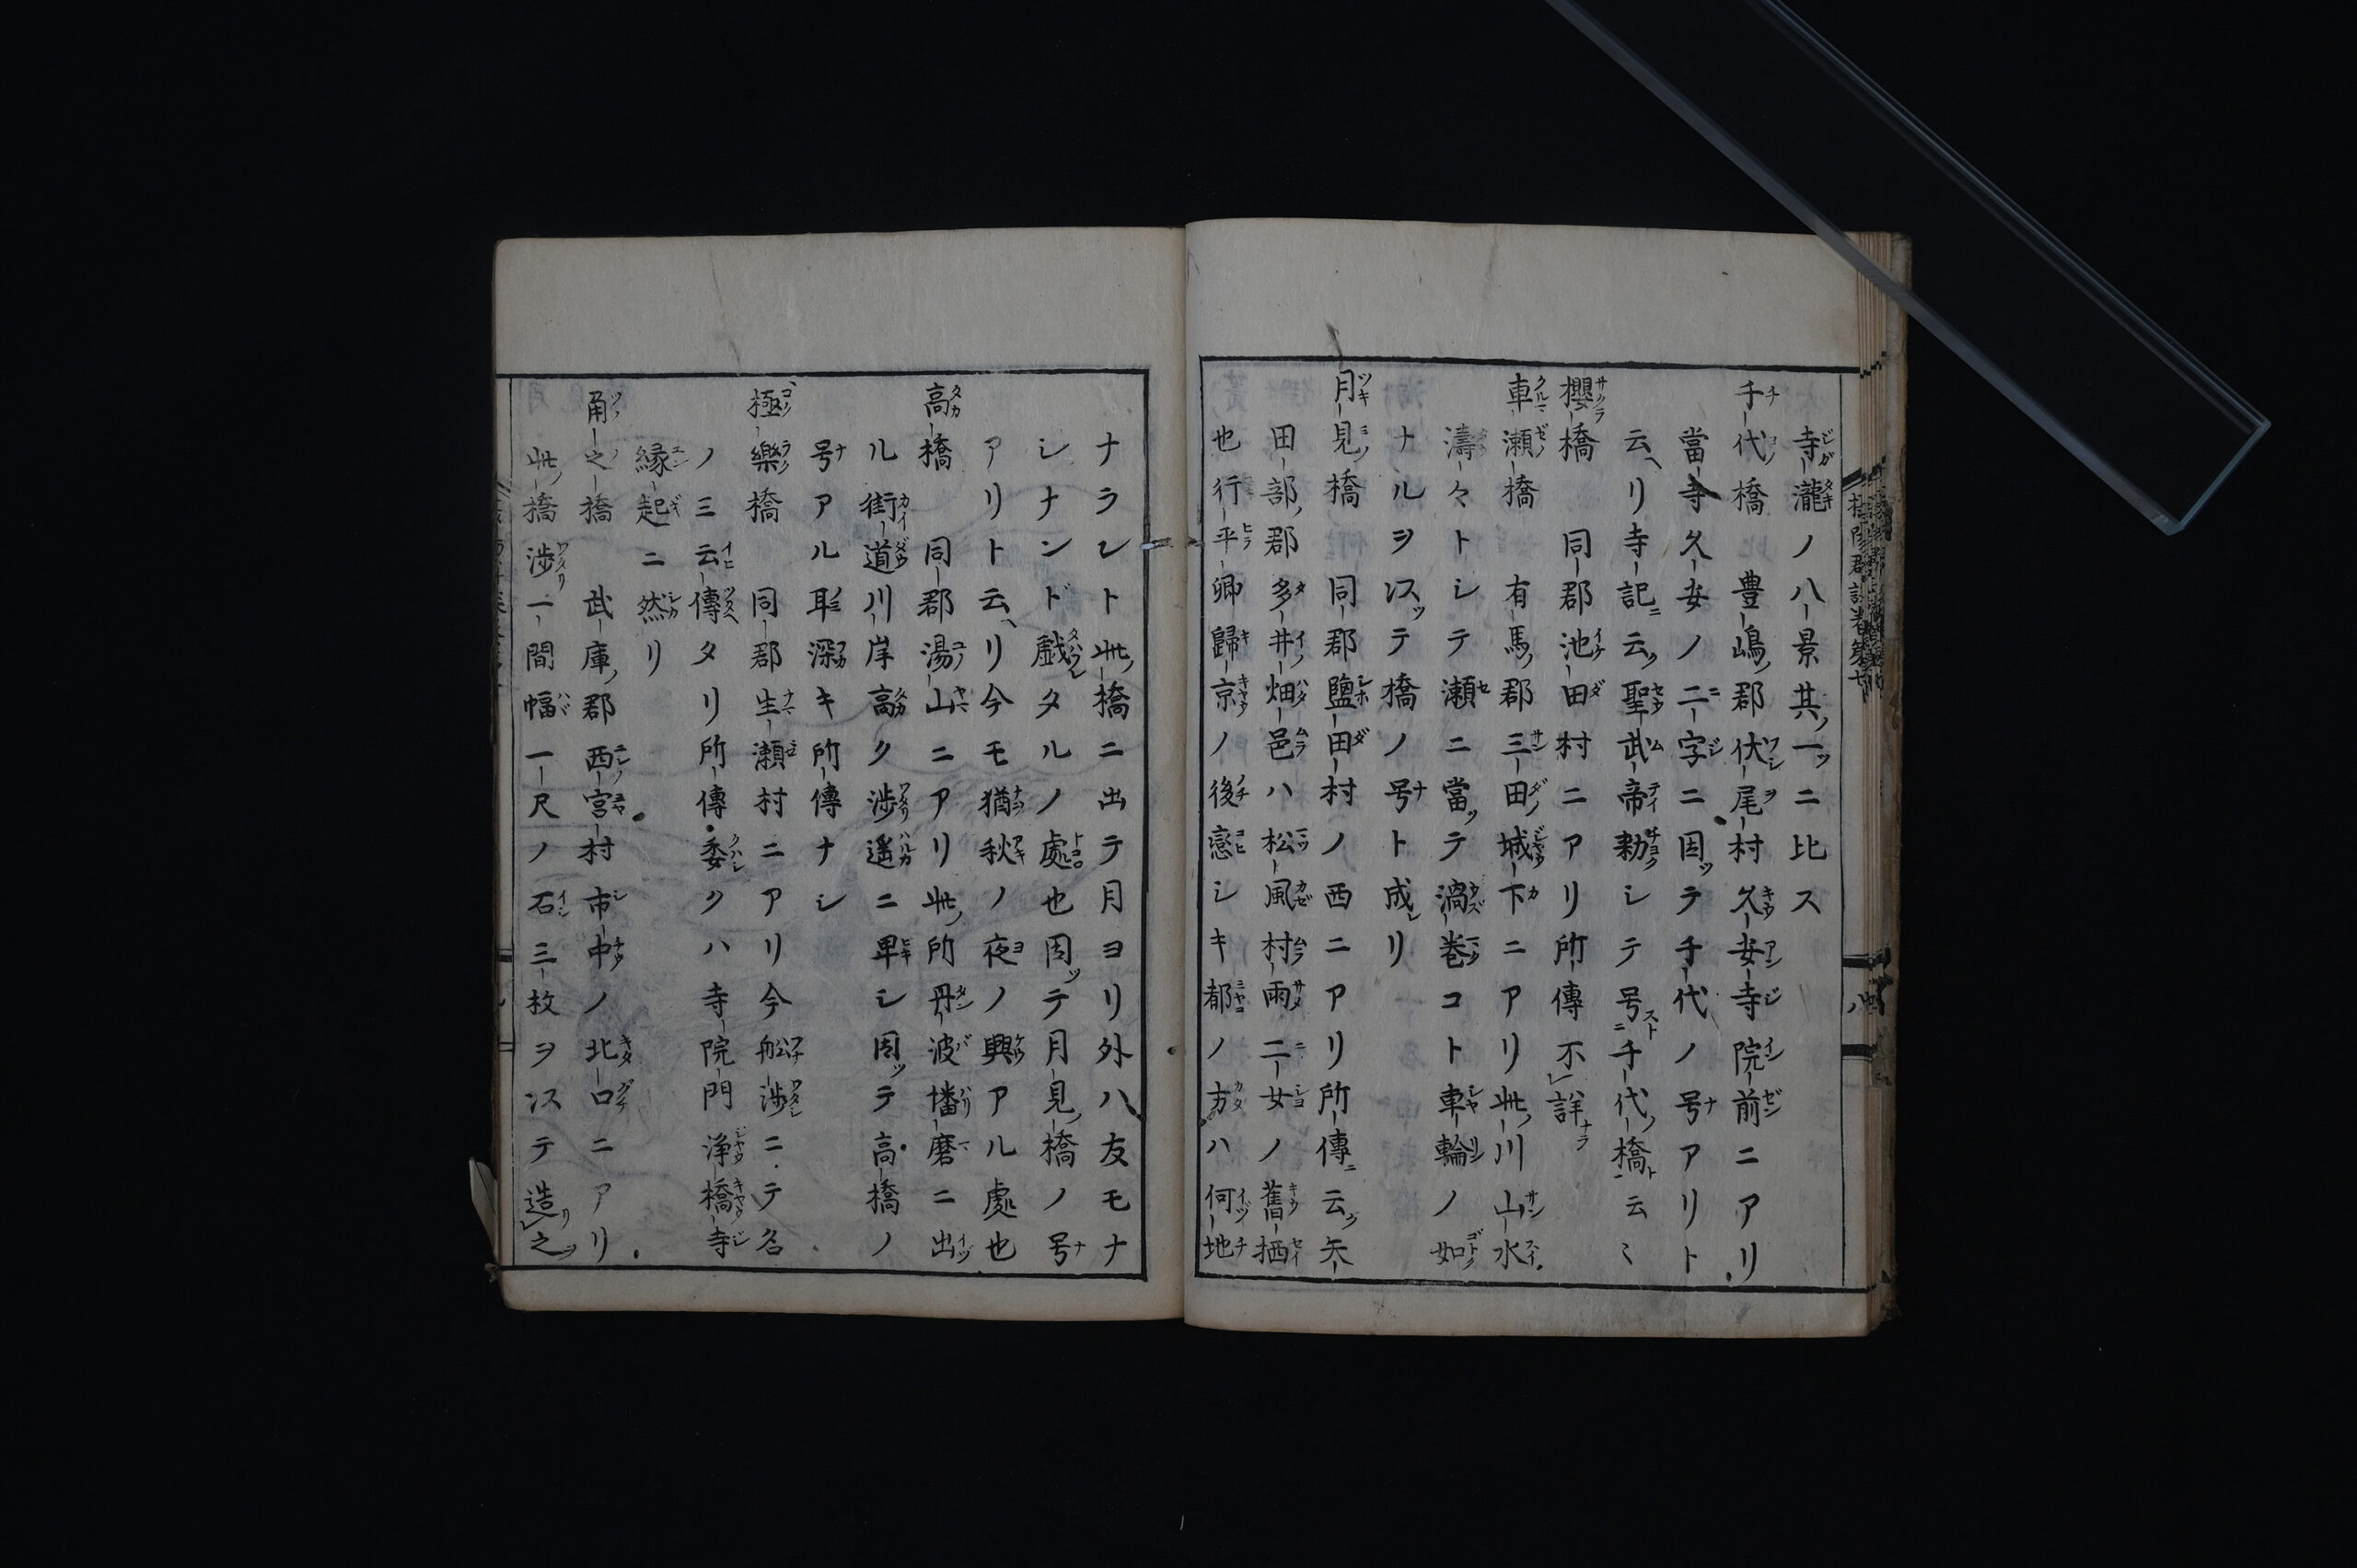 寺瀧ノ八景其一ツニ比ス
千代橋 豊嶋郡伏尾村久安寺院前ニアリ
當寺久安ノ二字ニ因ッテ千代ノ号アリト
云ヘリ寺記ニ云ク聖武帝勅シテ号ニ千代橋ト云〻
櫻橋 同郡池田村ニアリ所傳不詳ナラ
車瀬橋 有馬郡三田城下ニアリ此川山水
濤々トシテ瀬ニ當ッテ渦巻コト車輪ノ如
ナルヲ以ッテ橋ノ号ト成レリ
月見橋 同郡鹽田村ノ西ニアリ所傳ニ云ク矢
田部郡多井畑邑ハ松風村雨二女ノ舊栖
也行平卿歸京ノ後戀シキ都ノ方ハ何地
ナラレト此橋ニ出テ月ヨリ外ハ友モナ
シナンド戯レタルノ處也因ッテ月見橋ノ号
アリト云ヘリ今モ猶秋ノ夜ノ興アル處也
高橋 同郡湯山ニアリ此所丹波播磨ニ出
ル街道川岸高ク渉遥ニ卑シ因ッテ高橋ノ
号アル耶深キ所傳ナシ
極樂橋 同郡生瀬村ニアリ今舩渉ニテ名
ノミ云傳タリ所傳委クハ寺院門浄橋寺
縁起ニ然リ
甬之橋 武庫郡西宮村市中ノ北口ニアリ
此橋渉一間幅一尺ノ石三枚ヲ以テ造リ之ヲ